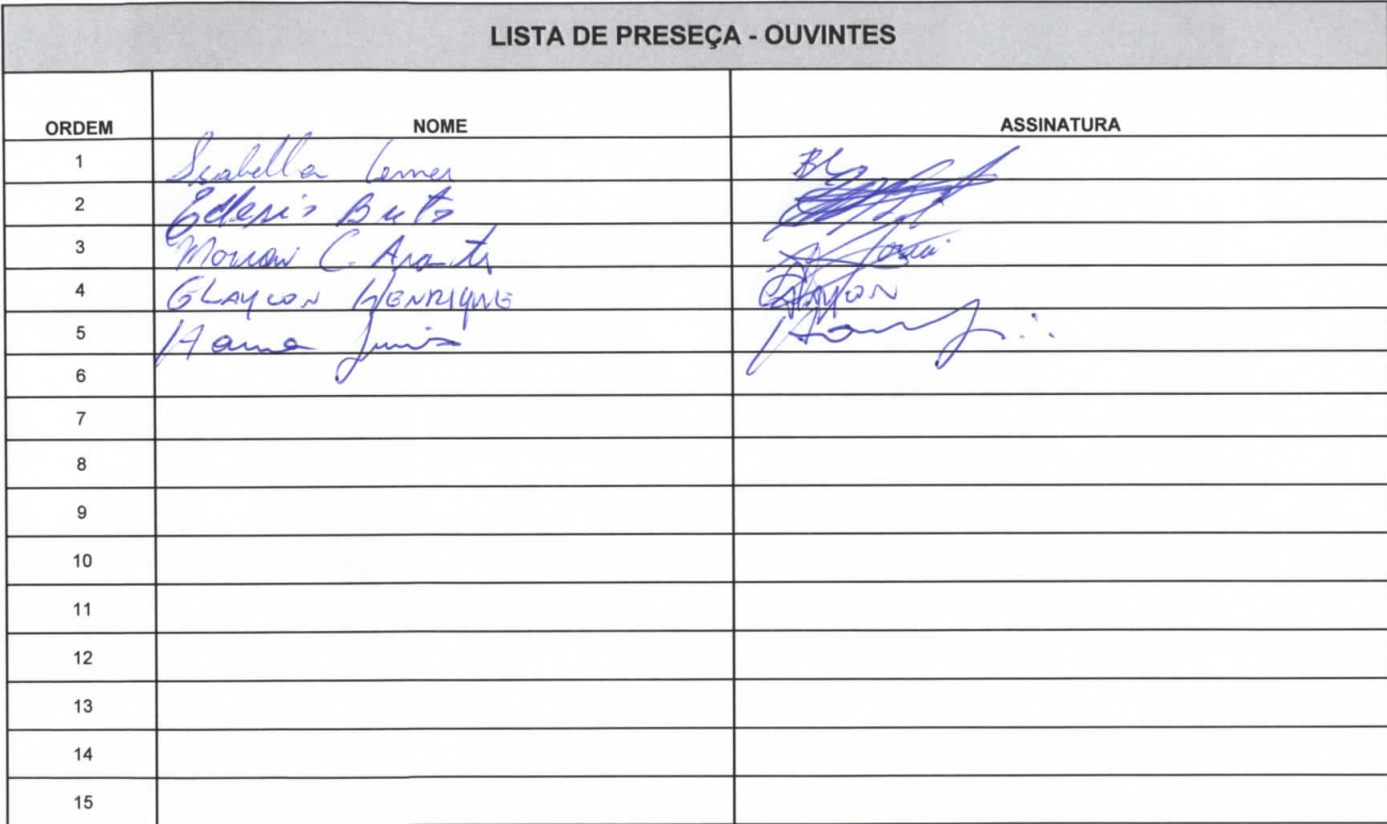 LISTA DE PRESEÇA - OUVINTES
ORDEM NOME ASSINATURA
1 Isabella Lemes
2 Edleris Brito
3 C.
4 GLAYCON HENRIQUE GLAYCON
5 Junior
6
7
8
9
10
11
12
13
14
15